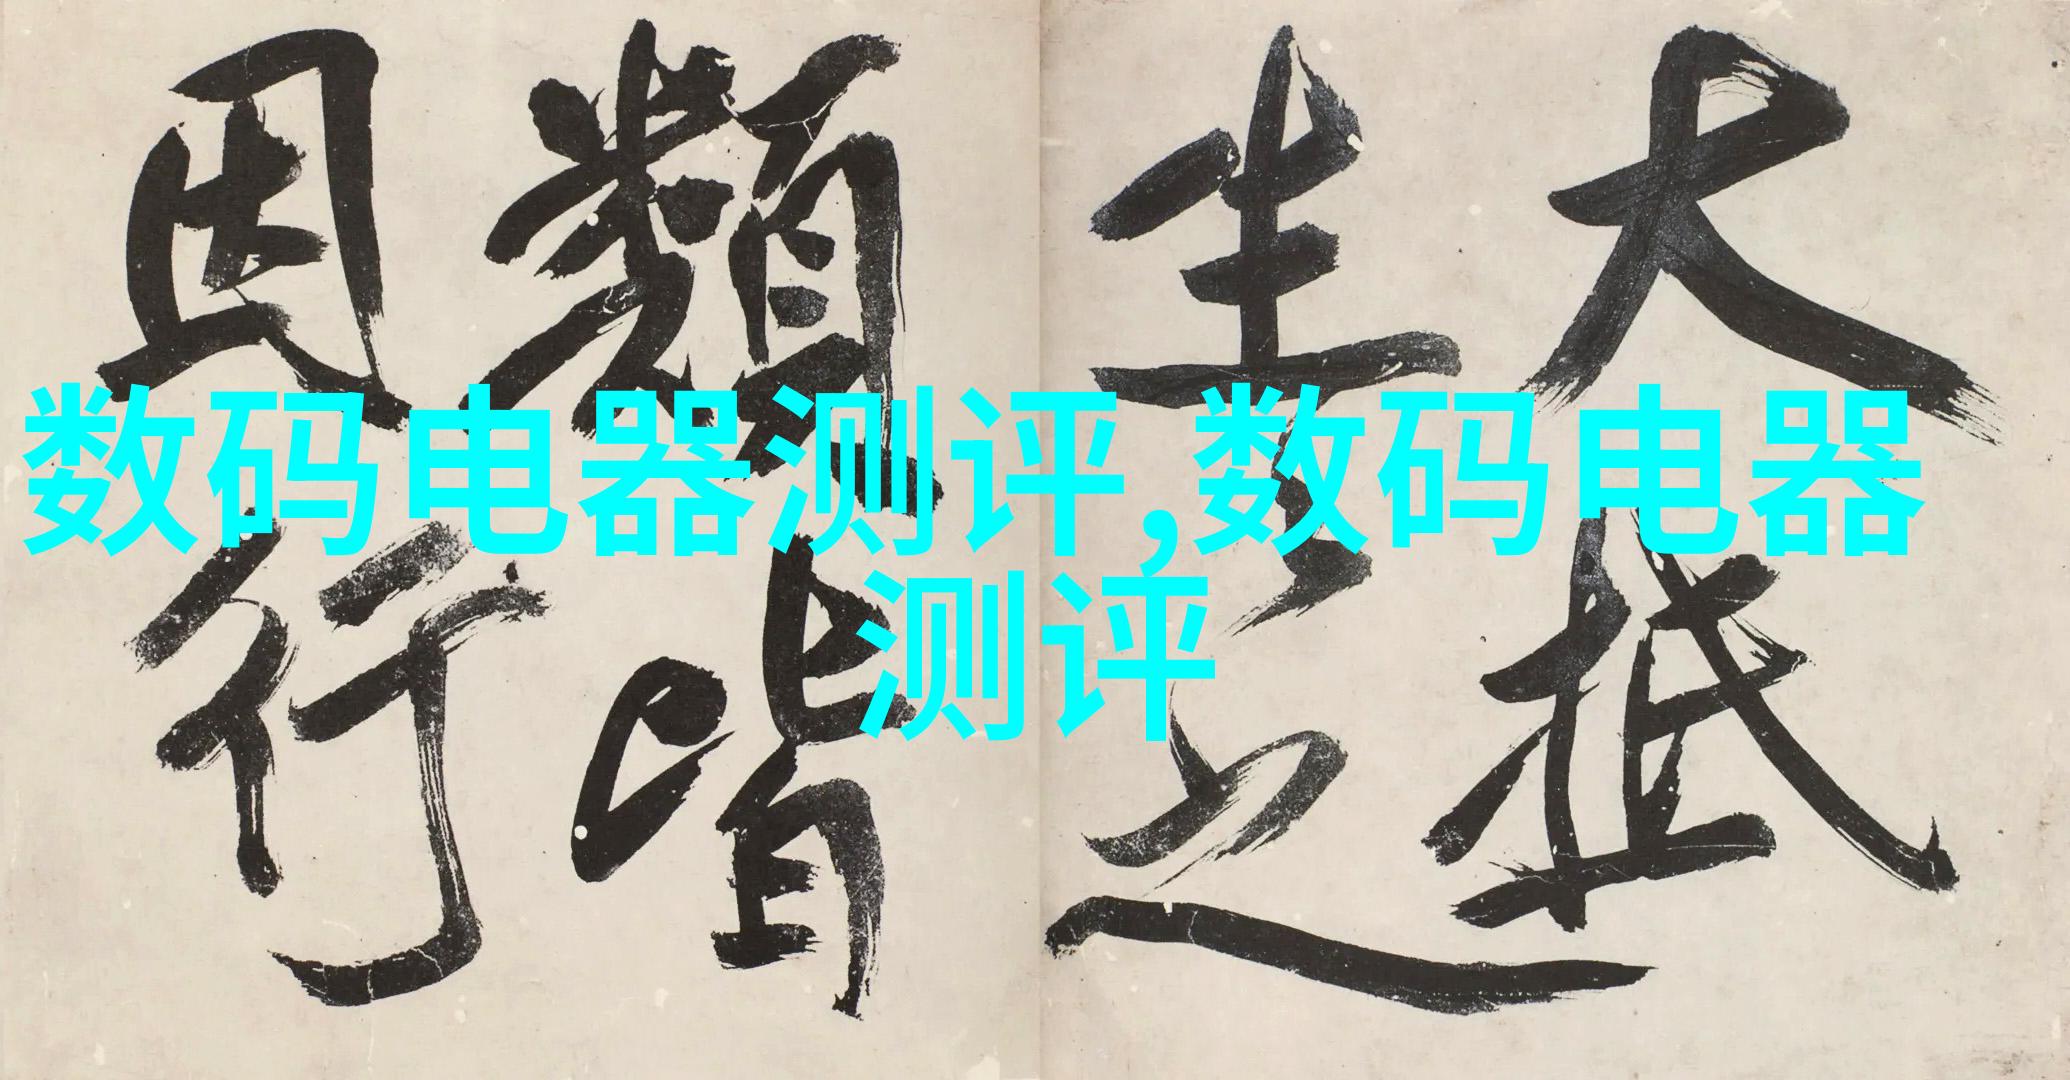 大抵
生之
類皆
因行
数码电器测评,数码电器
测评